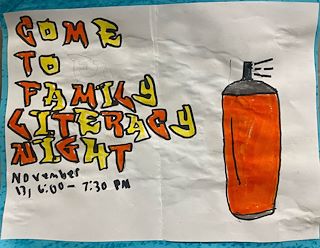 COME
TO
FAMILY
LITERACY
NIGHT
November
13, 6:00 - 7:30 PM